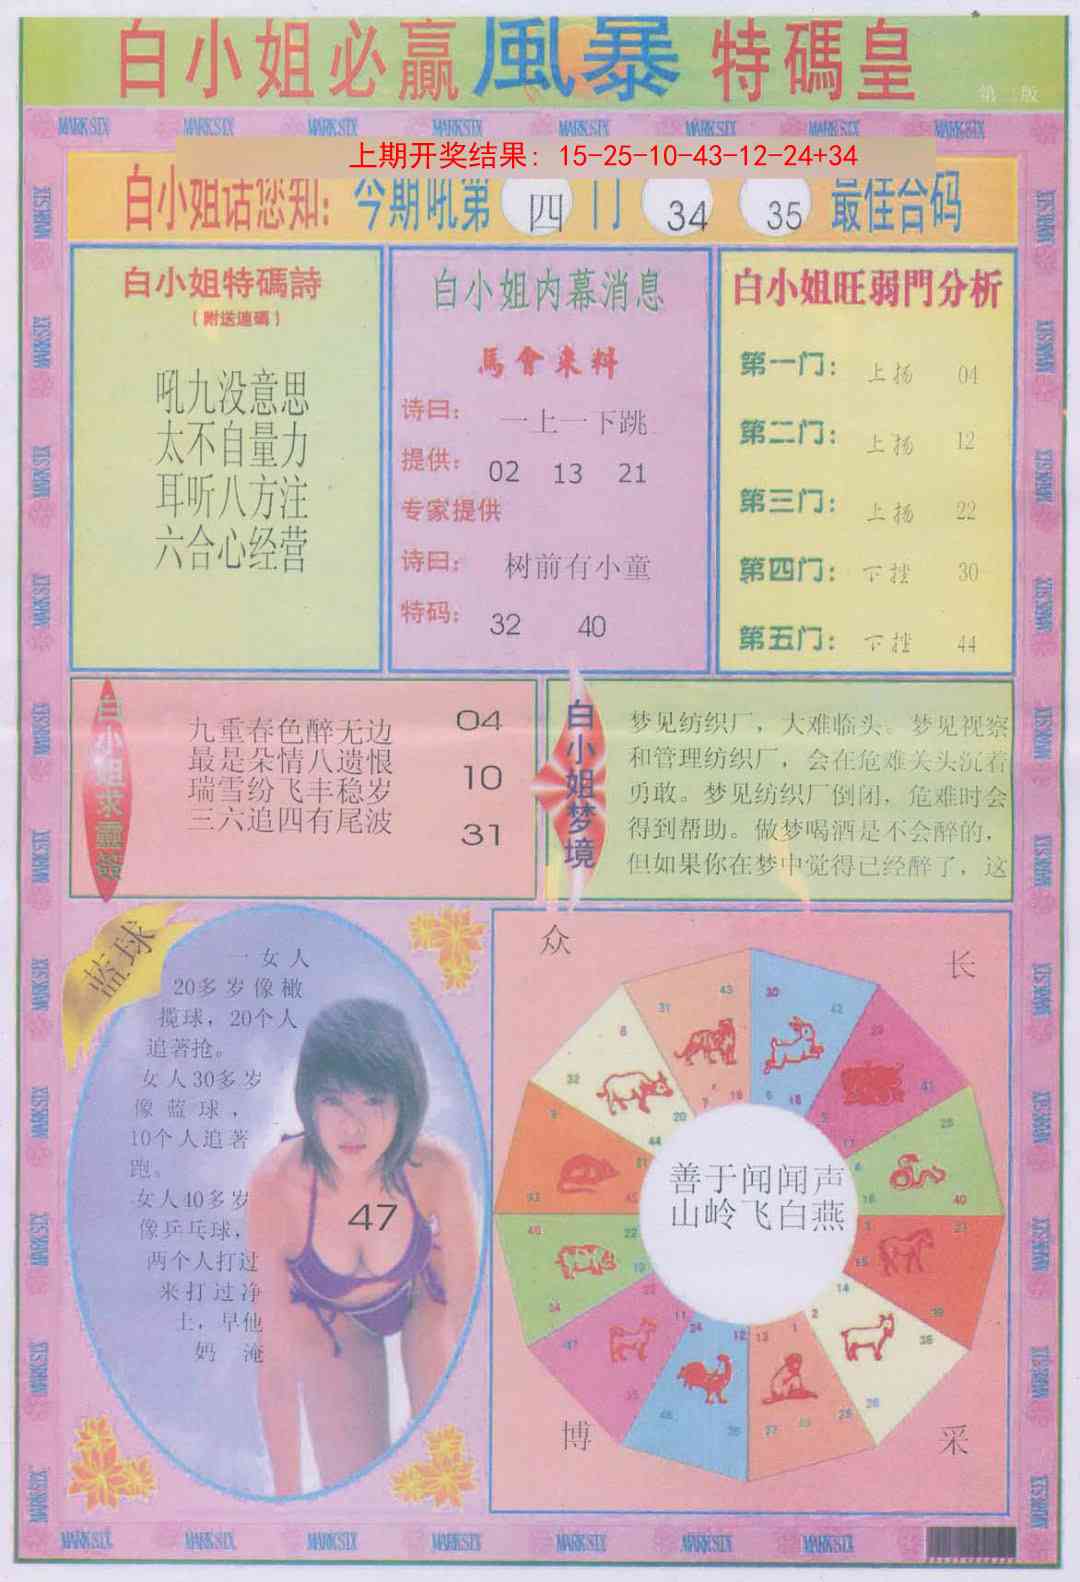 白小姐必贏風暴特碼皇
第二版
MARK SIX MARK SIX MARK SIX MARK SIX MARK SIX MARK SIX MARK SIX MARK SIX
上期开奖结果：15-25-10-43-12-24+34
白小姐话您知：今期吼第 四 门 34 35 最佳合码
白小姐特碼詩
（附送連碼）
吼九没意思
太不自量力
耳听八方注
六合心经营
白小姐内幕消息
馬會来料
诗曰：一上一下跳
提供：02 13 21
专家提供
诗曰：树前有小童
特码：32 40
白小姐旺弱門分析
第一门：上扬 04
第二门：上扬 12
第三门：上扬 22
第四门：下挫 30
第五门：下挫 44
白小姐求靈簽
九重春色醉无边
最是朵情八遗恨
瑞雪纷飞丰稳岁
三六追四有尾波
04
10
31
白小姐梦境
梦见纺织厂，大难临头。梦见视察
和管理纺织厂，会在危难关头沉着
勇敢。梦见纺织厂倒闭，危难时会
得到帮助。做梦喝酒是不会醉的，
但如果你在梦中觉得已经醉了，这
蓝球
一女人
20多岁像橄
揽球，20个人
追著抢。
女人30多岁
像蓝球，
10个人追著
跑。
女人40多岁
像乒乓球，
两个人打过
来打过净
土，早他
奶 淹
47
众
长
善于闻闻声
山岭飞白燕
博
采
MARK SIX MARK SIX MARK SIX MARK SIX MARK SIX MARK SIX MARK SIX